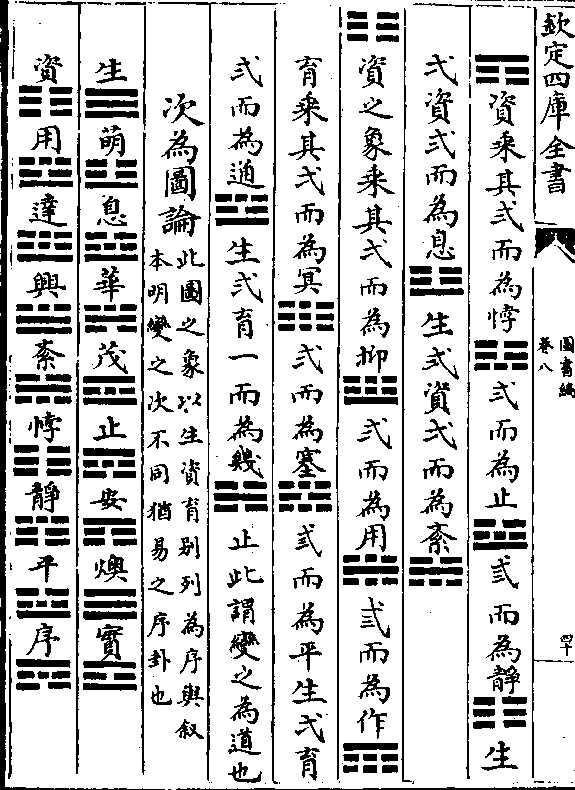 欽定四庫全書
圖書編
卷八
四十
資乘其弍而為悖 弍而為止 弎而為靜 生
弍資弎而為息 生弍資弍而為紊
資之象乘其弍而為抑 弍而為用 弎而為作
育乘其弍而為冥 弍而為塞 弎而為平生弍育
弍而為通 生弍育一而為幾 止此謂變之為道也
次為圖論 此圖之象以生資育别列為序與叙
本明變之次不同猶易之序卦也
生 萌 息 華 茂 止 安 燠 實
資 用 達 興 紊 悖 靜 平 序